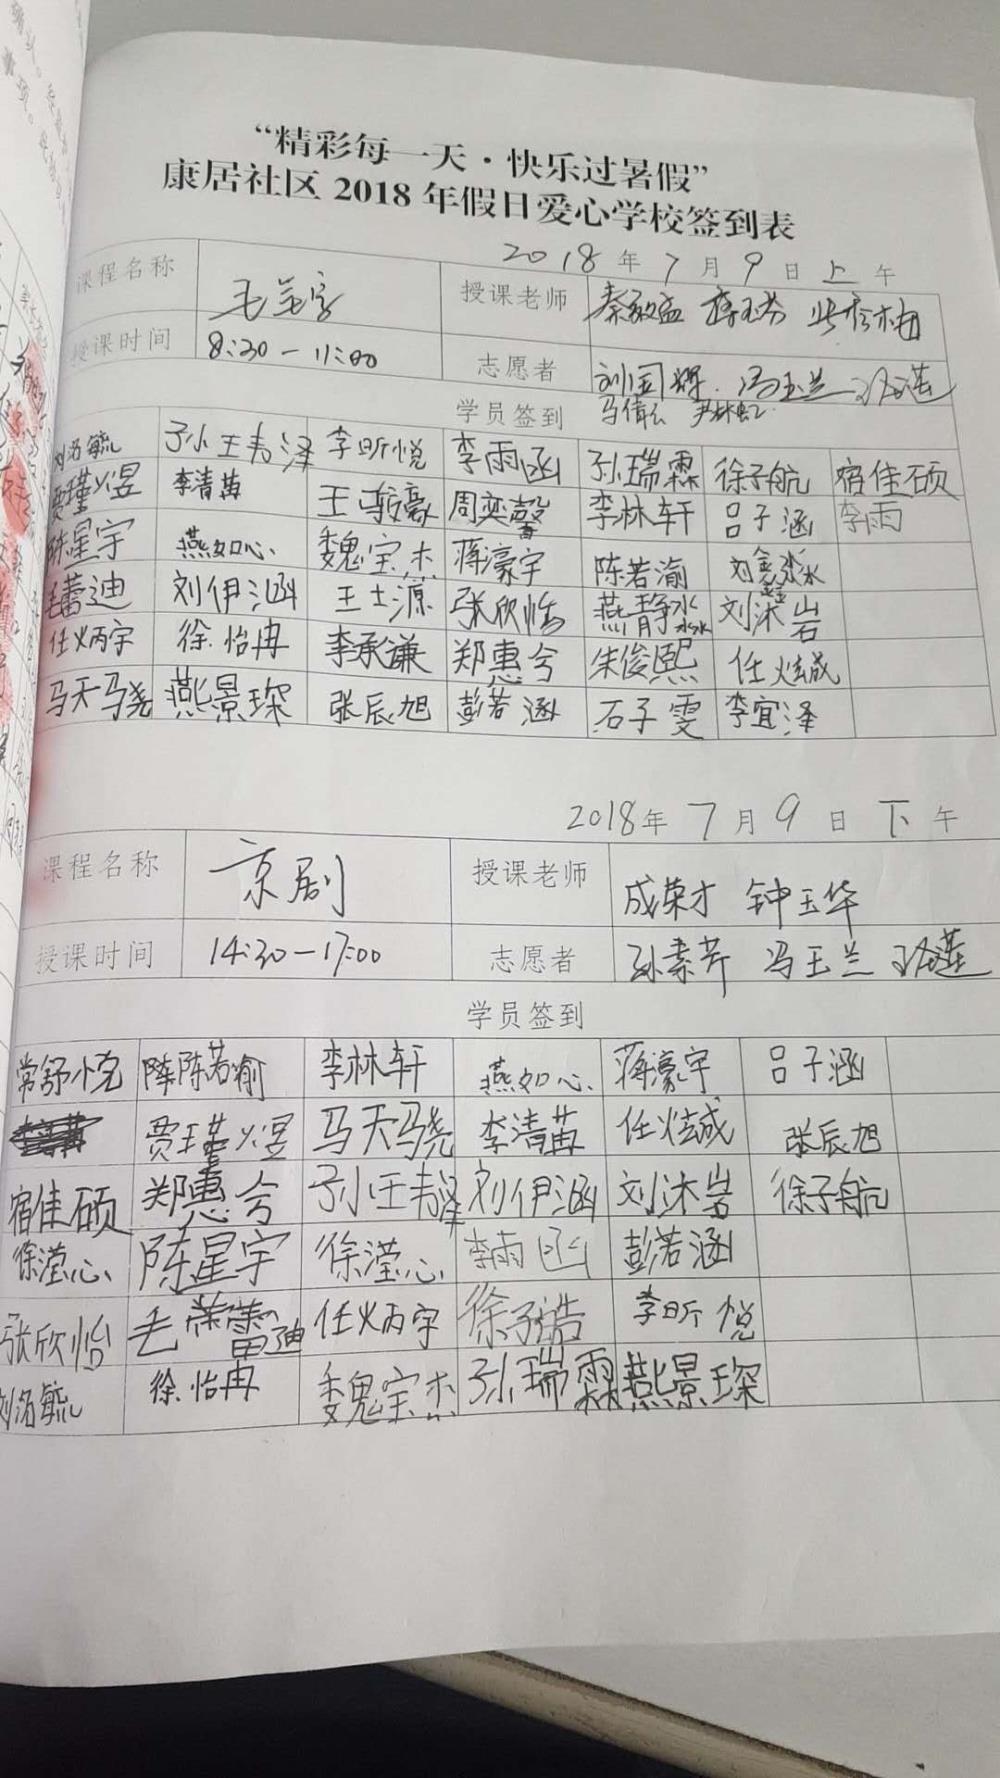 “精彩每一天·快乐过暑假”
康居社区 2018 年假日爱心学校签到表
2018 年 7 月 9 日 上 午
课程名称 毛笔字 授课老师 秦敏孟
授课时间 8:30-11:00 志愿者 刘国辉 冯玉兰
学员签到
刘洺毓 孙王韦泽 李昕悦 李雨函 孙瑞霖 徐子航 宿佳硕
贾瑾煜 李清苗 王毅豪 周奕馨 李林轩 吕子涵 李雨
陈星宇 燕如心 魏宝杰 蒋濠宇 陈若渝 刘鑫淼
毛蕾迪 刘伊涵 王士源 张欣怡 燕静淼 刘沐岩
任炳宇 徐怡冉 李承谦 郑惠兮 朱俊熙 任炫诚
马天骁 燕景琛 张辰旭 彭若涵 石子雯 李宜泽
2018年 7 月 9 日 下 午
课程名称 京剧 授课老师 成荣才 钟玉华
授课时间 14:30-17:00 志愿者 孙素芹 冯玉兰
学员签到
常舒悦 陈陈若渝 李林轩 燕如心 蒋濠宇 吕子涵
贾瑾煜 马天骁 李清苗 任炫诚 张辰旭
宿佳硕 郑惠兮 孙王韦泽 刘伊涵 刘沐岩 徐子航
徐滢心 陈星宇 徐滢心 李雨函 彭若涵
张欣怡 毛蕾迪 任炳宇 徐子浩 李昕悦
刘洺毓 徐怡冉 魏宝杰 孙瑞霖 燕景琛